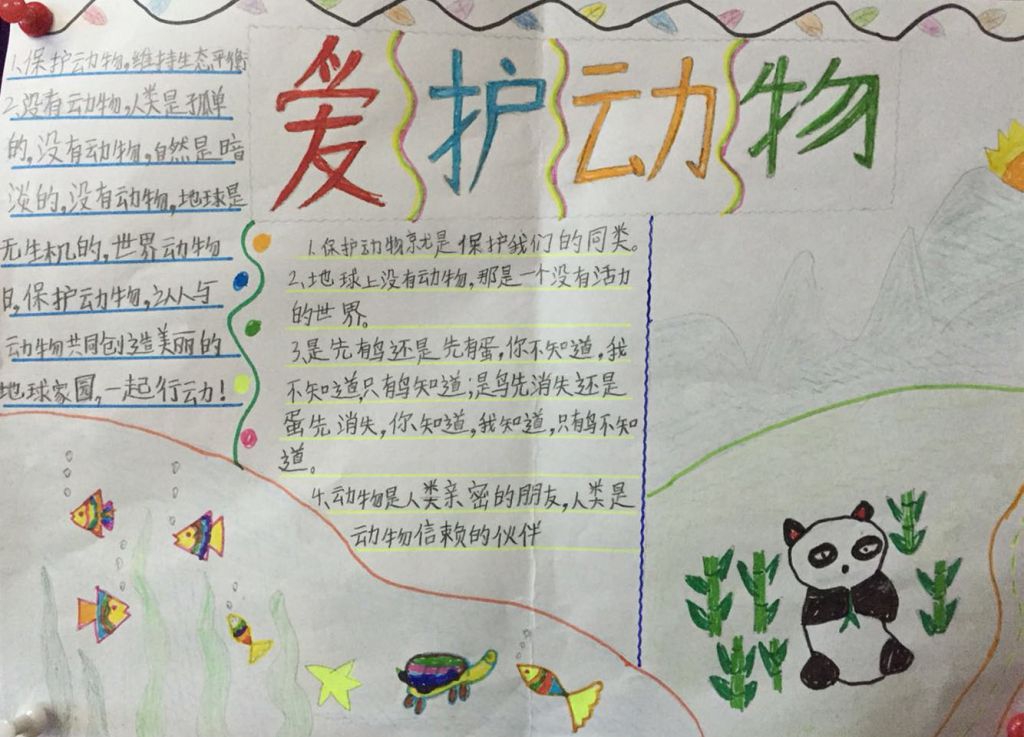 爱护动物
1.保护动物,维持生态平衡
2.没有动物,人类是孤单
的,没有动物,自然是暗
淡的,没有动物,地球是
无生机的,世界动物
日,保护动物,让人与
动物共同创造美丽的
地球家园,一起行动!
1.保护动物就是保护我们的同类。
2.地球上没有动物,那是一个没有活力
的世界。
3.是先有鸟还是先有蛋,你不知道,我
不知道,只有鸟知道;是鸟先消失还是
蛋先消失,你知道,我知道,只有鸟不知
道。
4.动物是人类亲密的朋友,人类是
动物信赖的伙伴